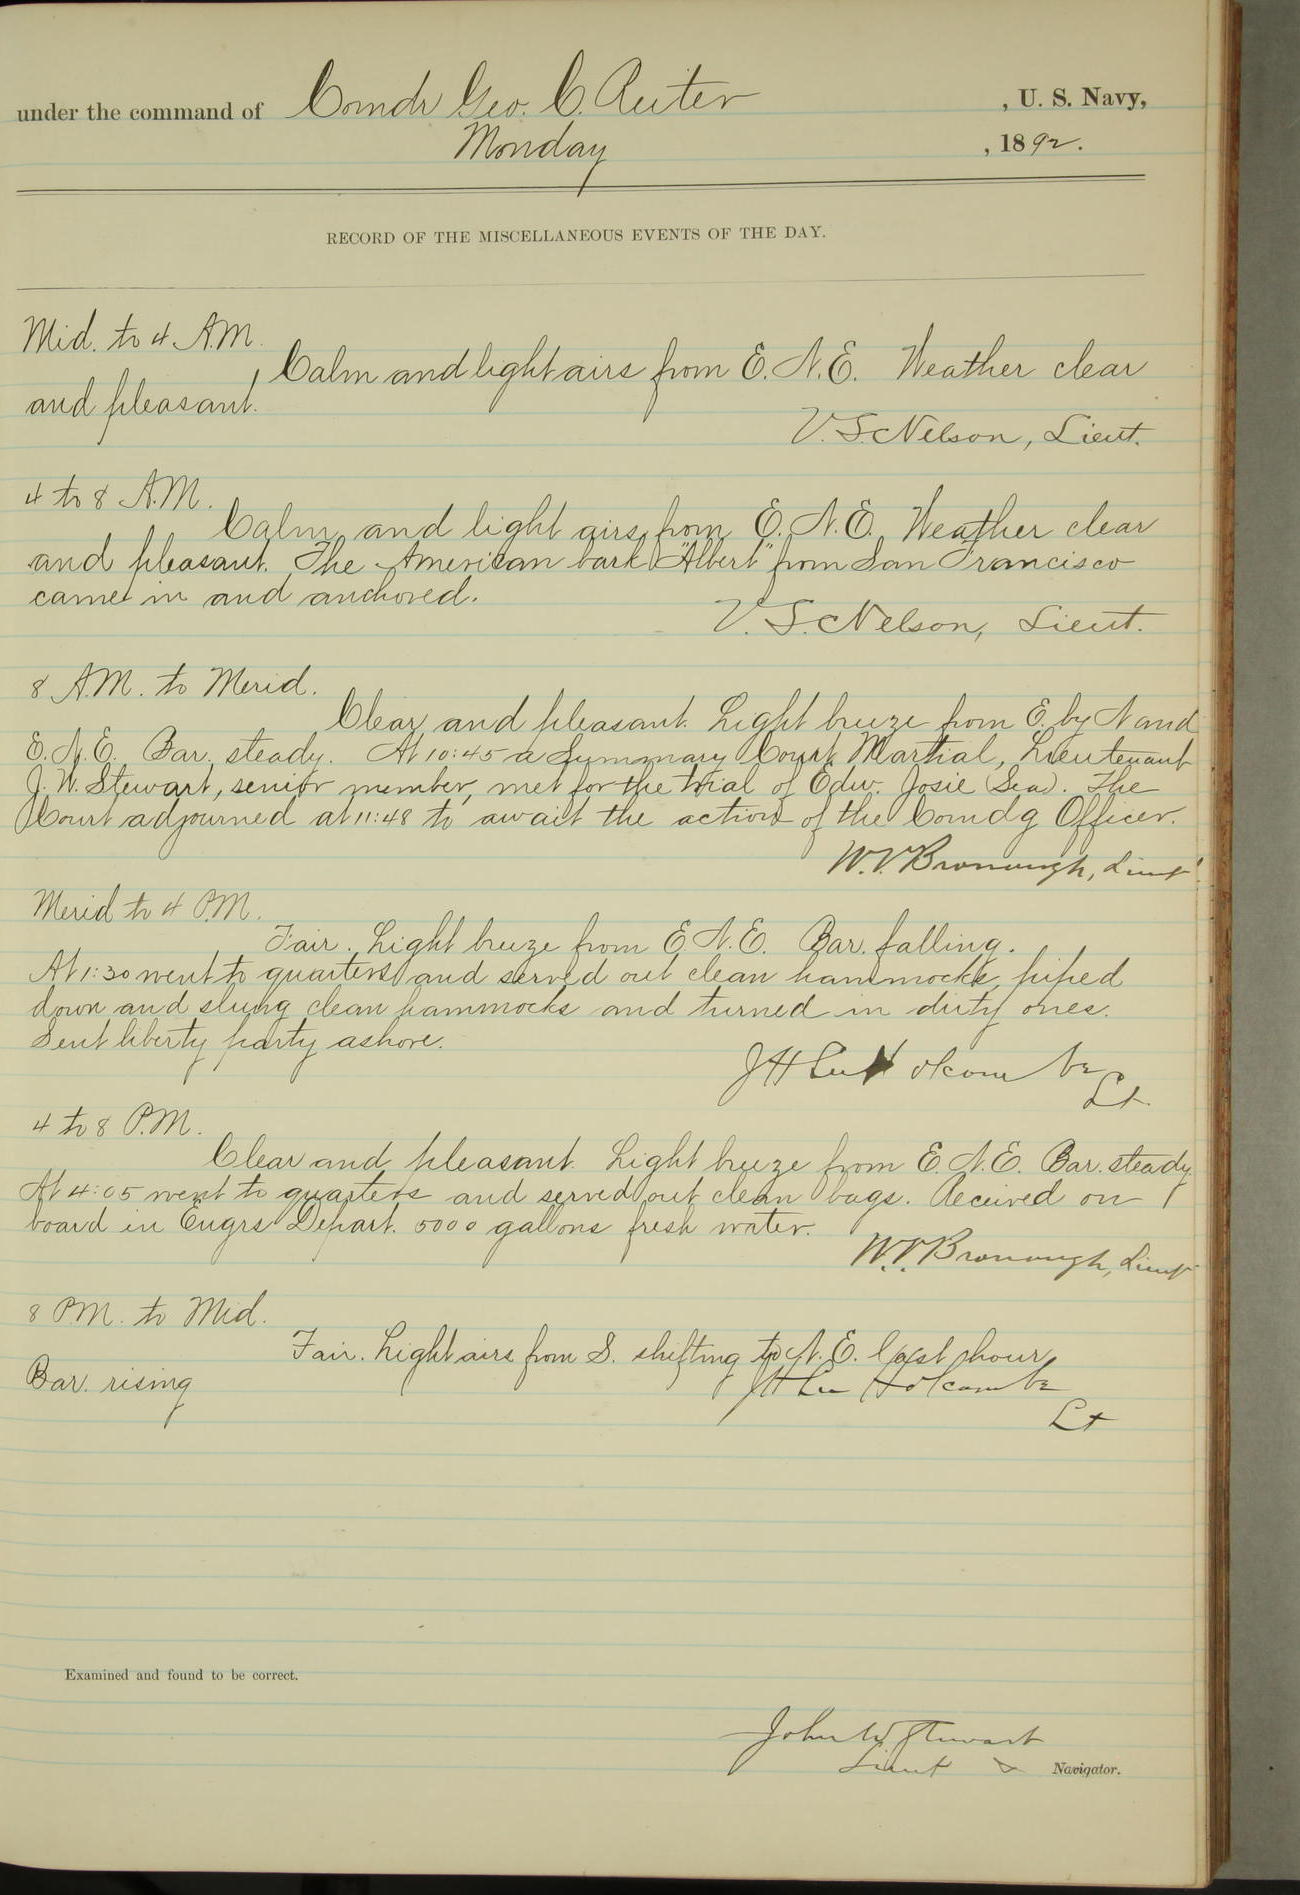 under the command of Comdr Geo. C. Reiter, U. S. Navy,
Monday, 1892.
RECORD OF THE MISCELLANEOUS EVENTS OF THE DAY.
Mid. to 4 A.M.
Calm and light airs from E.N.E. Weather clear
and pleasant.
V. S. Nelson, Lieut.
4 to 8 A.M.
Calm and light airs from E.N.E. Weather clear
and pleasant. The American bark "Albert" from San Francisco
came in and anchored.
V. S. Nelson, Lieut.
8 A.M. to Merid.
Clear and pleasant. Light breeze from E. by N and
E.N.E. Bar. steady. At 10:45 a Summary Court Martial, Lieutenant
J. W. Stewart, senior member, met for the trial of Edw. Josie (Sea). The
Court adjourned at 11:48 to await the action of the Comdg Officer.
W. V. Bronaugh, Lieut.
Merid to 4 P.M.
Fair. Light breeze from E.N.E. Bar. falling.
At 1:30 went to quarters and served out clean hammocks, piped
down and slung clean hammocks and turned in dirty ones.
Sent liberty party ashore.
JH Lee Holcombe
Lt.
4 to 8 P.M.
Clear and pleasant. Light breeze from E.N.E. Bar. steady
At 4:05 went to quarters and served out clean bags. Received on
board in Engrs Depart. 5000 gallons fresh water.
W. V. Bronaugh, Lieut
8 P.M. to Mid.
Fair. Light airs from S. shifting to N.E. last hour
Bar. rising
JH Lee Holcombe
Lt
Examined and found to be correct.
John W Stewart
Lieut & Navigator.